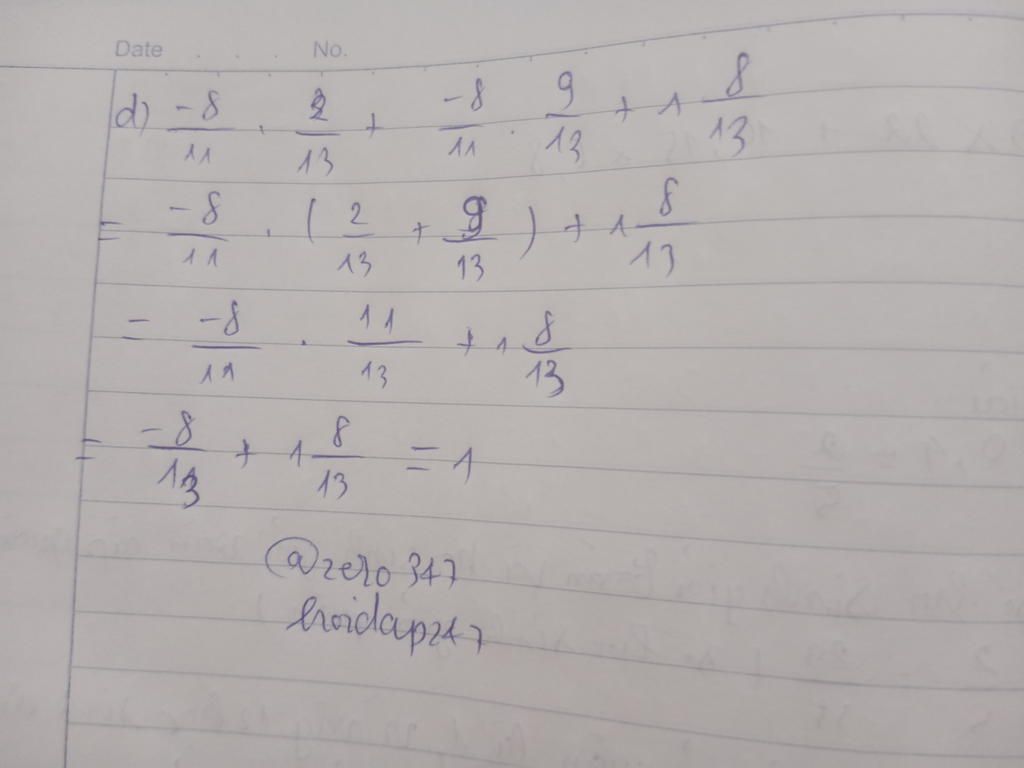 Date . . . . No.
d) -8/11 . 2/13 + -8/11 . 9/13 + 1 8/13
= -8/11 . ( 2/13 + 9/13 ) + 1 8/13
= -8/11 . 11/13 + 1 8/13
= -8/13 + 1 8/13 = 1
@zero347
hoidap247